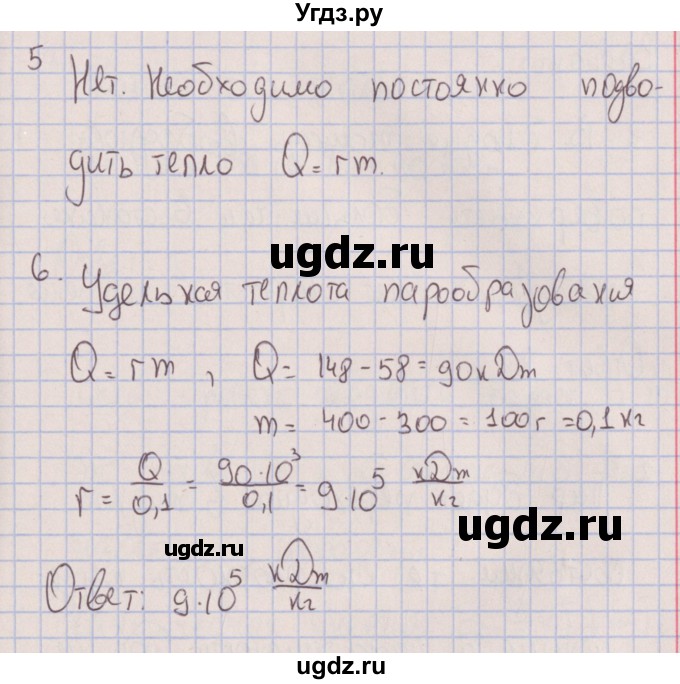 Угдз.ру
5
Нет. Необходимо постоянно подво-
дить тепло Q = rm.
ugdz.ru
6. Удельная теплота парообразования
Q = rm , Q = 148 - 58 = 90 кДж
m = 400 - 300 = 100 г = 0,1 кг
r = Q/0,1 = 90·10³/0,1 = 9·10⁵ кДж/кг
ugdz.ru
ugdz.ru
Ответ: 9·10⁵ кДж/кг
ugdz.ru